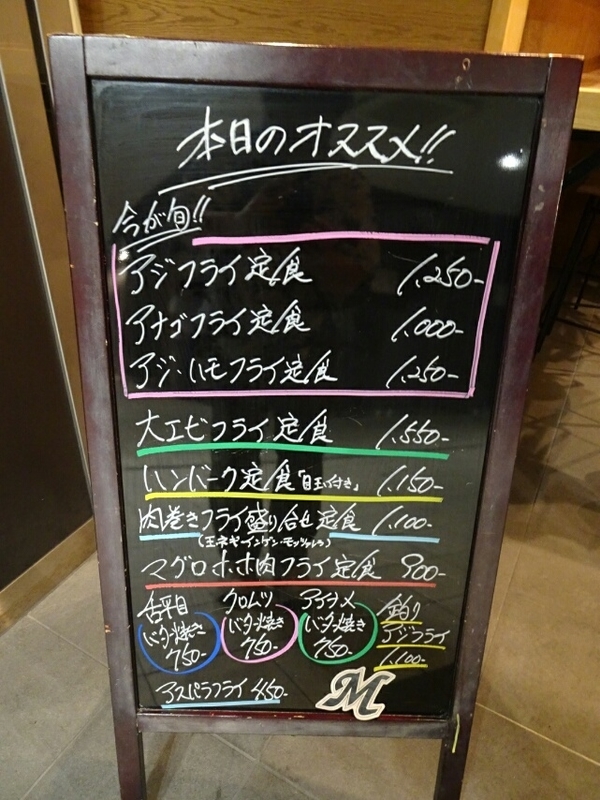 本日のオススメ!!
今が旬!!
アジフライ定食 1,250-
アナゴフライ定食 1,000-
アジ・ハモフライ定食 1,250-
大エビフライ定食 1,550-
ハンバーグ定食「目玉付き」 1,150-
肉巻きフライ盛り合せ定食 1,100-
(玉ネギ・インゲン・モッツァレラ)
マグロホホ肉フライ定食 900-
舌平目
バター焼き
750-
クロムツ
バター焼き
750-
アイナメ
バター焼き
750-
釣り
アジフライ
1,100-
アスパラフライ 450-
M